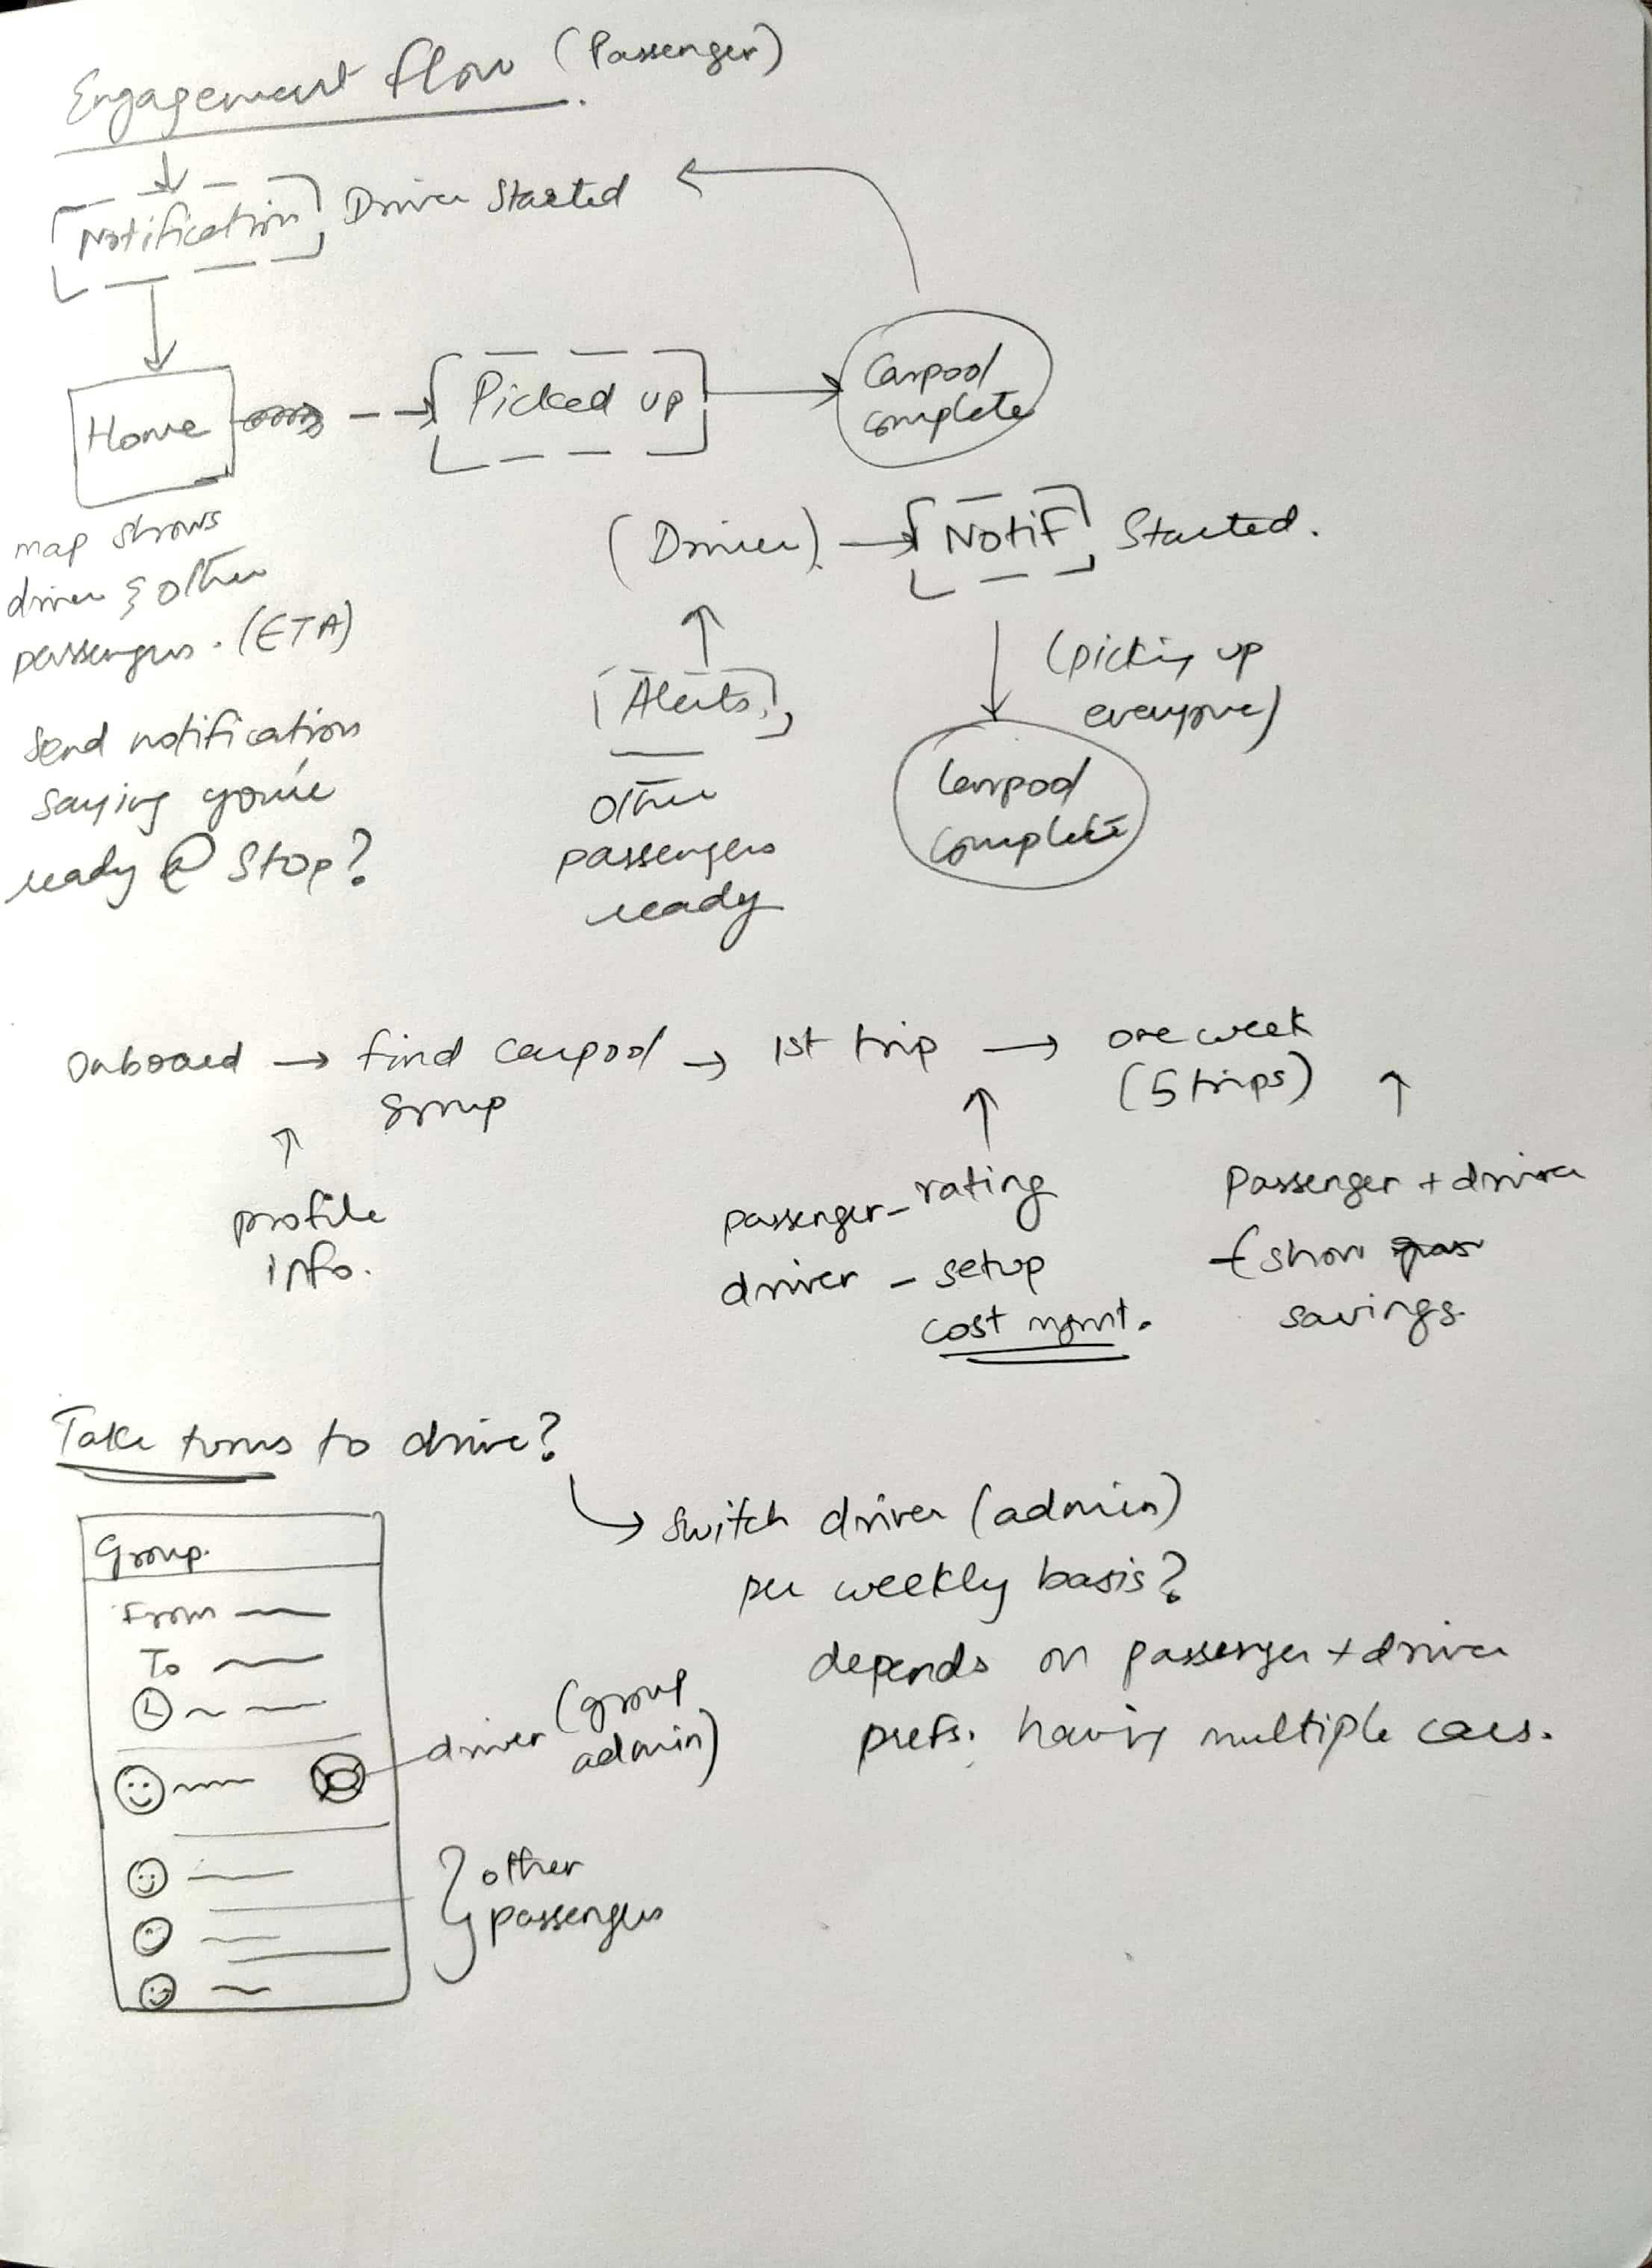 Engagement flow (Passenger)
Notification Driver Started
Home
Picked up
Carpool
complete
map shows
driver & other
passengers. (ETA)
Send notification
saying you're
ready @ Stop?
(Driver) Notif Started.
(picking up
everyone)
Alerts
other
passengers
ready
Carpool
complete
Onboard → find carpool → 1st trip → one week
group
(5 trips)
profile
info.
passenger - rating
driver - setup
cost mgmt.
Passenger + driver
show gas
savings.
Take turns to drive?
Switch driver (admin)
per weekly basis?
depends on passenger + driver
prefs. having multiple cars.
Group.
From
To
driver (group
admin)
other
passengers